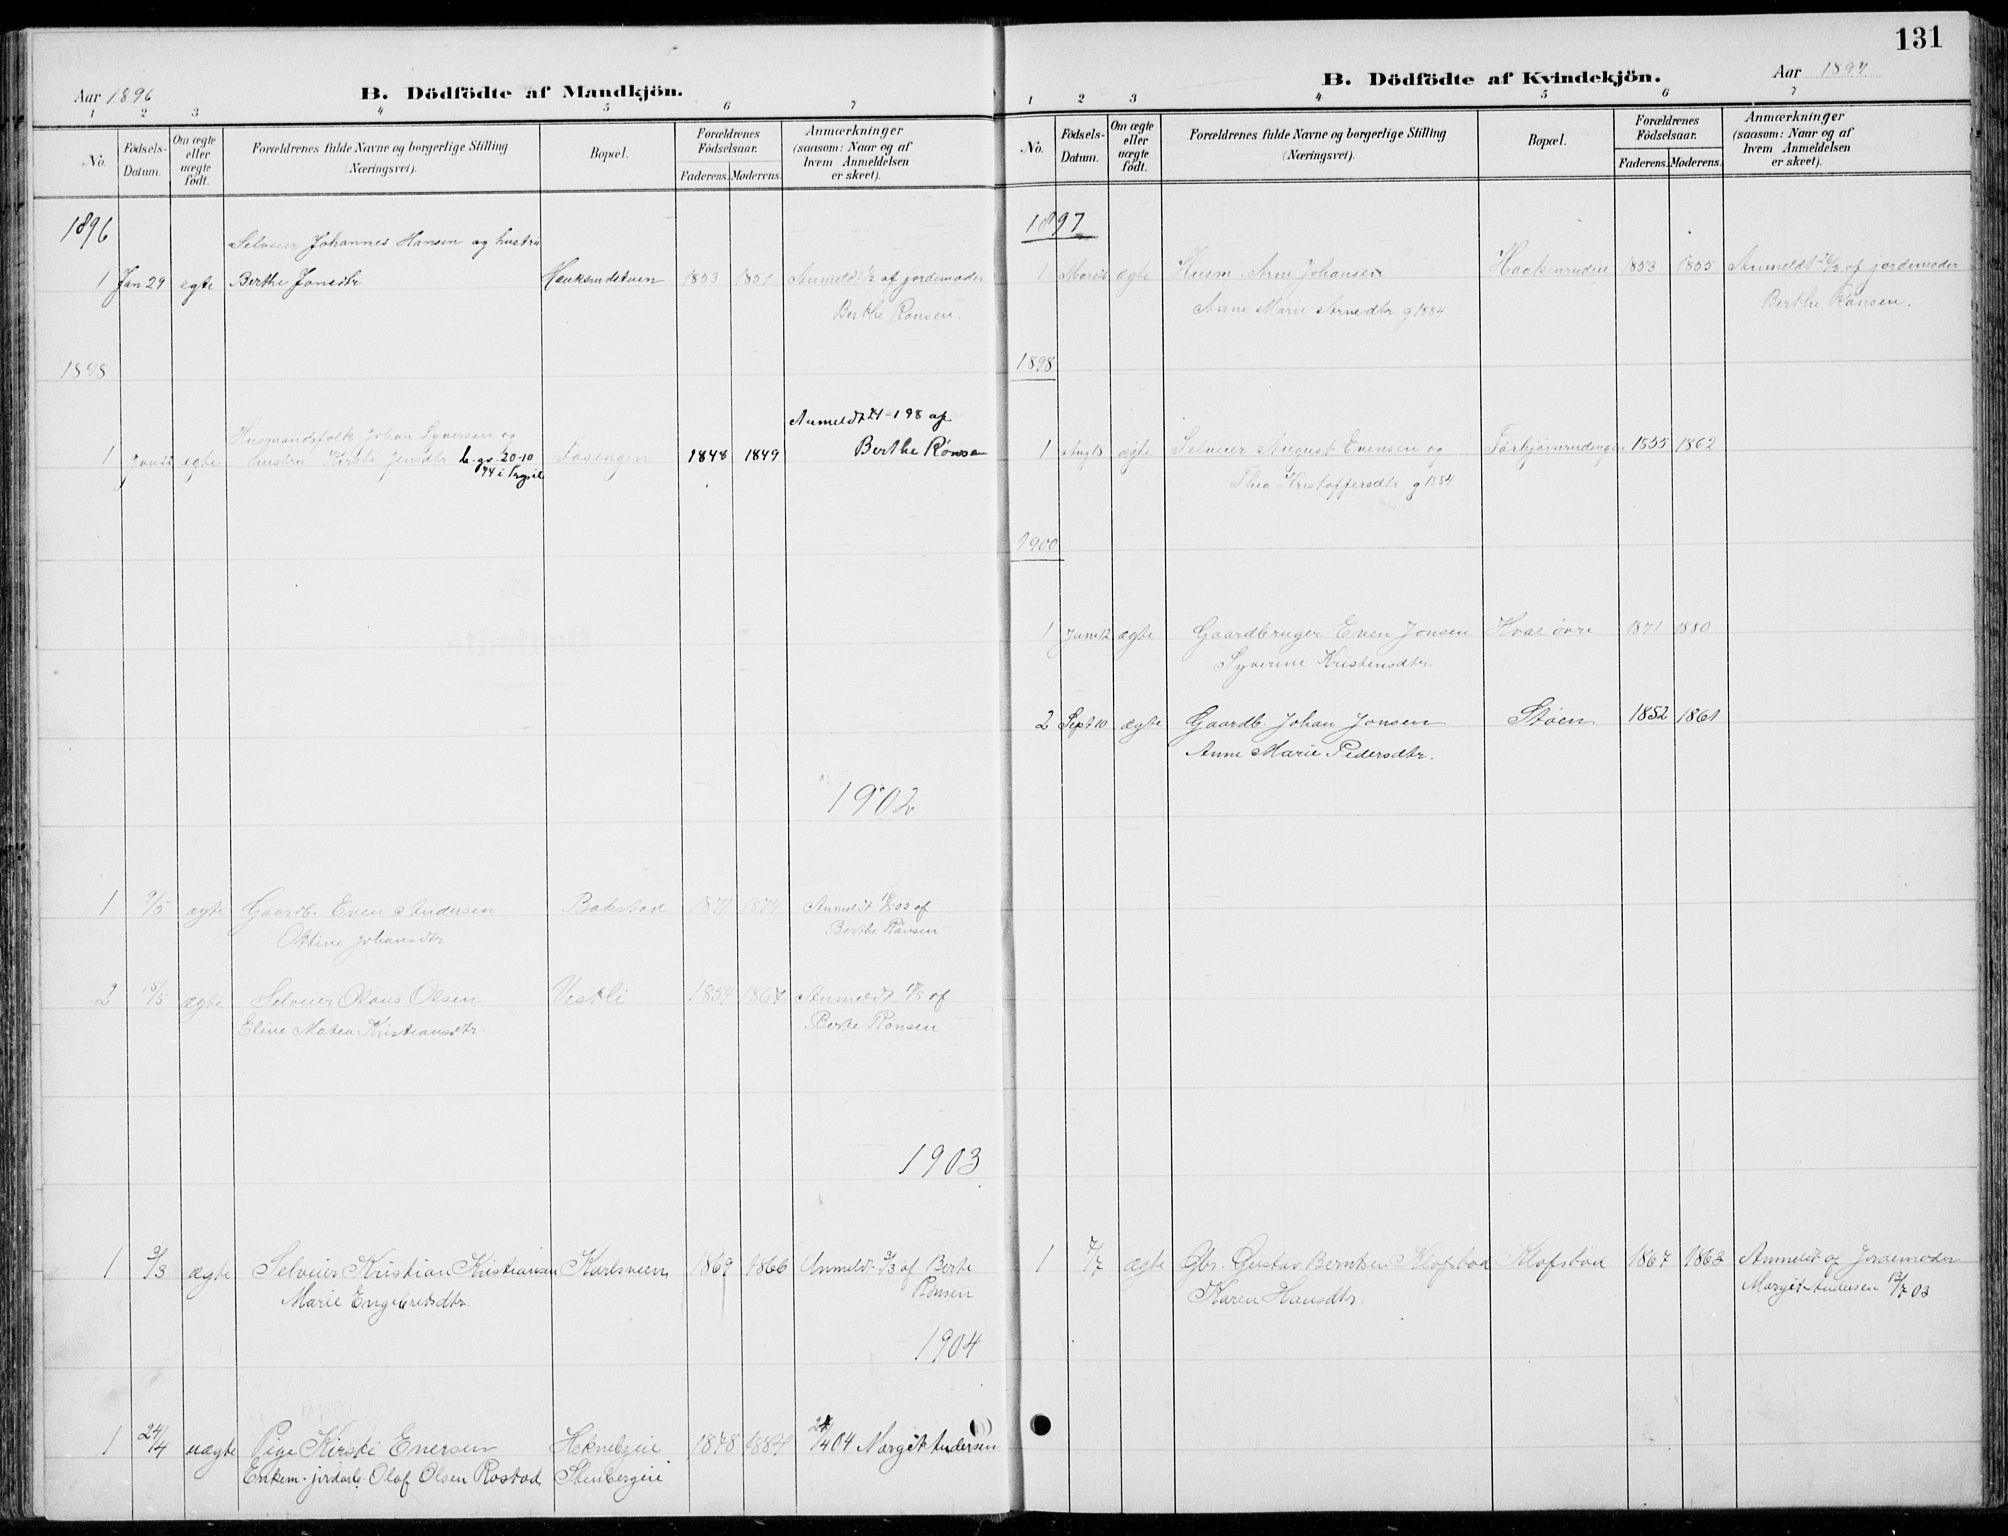 Aar 1896
B. Dödfödte af Mandkjön.
1 2 3 4 5 6 7
No. Födsels-Datum. Om ægte eller uægte födt. Forældrenes fulde Navne og borgerlige Stilling (Næringsvei). Bopæl. Forældrenes Födselsaar. Faderens. Moderens. Anmærkninger (saasom: Naar og af hvem Anmeldelsen er skeet).
1896
Selveier Johannes Hansen og hustru
1 Jan 29 egte Berthe Jonsdtr 1853 1851 Anmeldt 1/2 af jordemoder
Berthe Rönsen.
1898
Husmandsfolk Johan Syversen og Anmeldt 24-1 98 af
1 egte hustru Kirsti Jensdtr. b. gv. 20-10 1848 1849 Berthe Rönsen
94 i Trysil
1902
1 9/5 ægte Gaardb. Even Andersen Bakstad 1871 1874 Anmeldt af
Oktine Johansdtr Berthe Rönsen
2 15/5 ægte Selveier Olaus Olsen Vestli 1854 1867 Anmeldt af
Eline Matea Kristiansdtr. Berte Rönsen
1903
1 3/3 ægte Selveier Kristian Kristiansen Karlsveen 1869 1866 Anmeldt 3/3 af Berte
Marie Engebretsdtr. Rönsen
1904
1 24/4 uægte Pige Kirsti Enersen 1878 24/4 04 Margit Andersen
Enkem. jordarb. Olaf Olsen Rostad Stenbergeie
131
Aar 1897
B. Dödfödte af Kvindekjön.
1 2 3 4 5 6 7
No. Födsels-Datum. Om ægte eller uægte födt. Forældrenes fulde Navne og borgerlige Stilling (Næringsvei). Bopæl. Forældrenes Födselsaar. Faderens. Moderens. Anmærkninger (saasom: Naar og af hvem Anmeldelsen er skeet).
1897
1 ægte Husm. Arne Johansen 1853 1855 Anmeldt af jordemoder
Anne Marie Arnesdtr g 1884 Berthe Rönsen.
1898
1 Aug 18 ægte Selveier August Evensen og 1855 1862
Thea Kristoffersdtr. g 1884
1900
1 Juni 12 ægte Gaardbruger Even Jonsen Hval övre 1871 1880
Syverine Kristensdtr.
2 Sept 10 ægte Gaardb. Johan Jonsen Stöen 1852 1861
Anne Marie Pedersdtr.
1 7/7 ægte Gbr. Gustav Berntsen Klofstad Klofstad 1867 1863 Anmeldt af Jordemoder
Karen Hansdtr. Margit Andersen 12/7 03